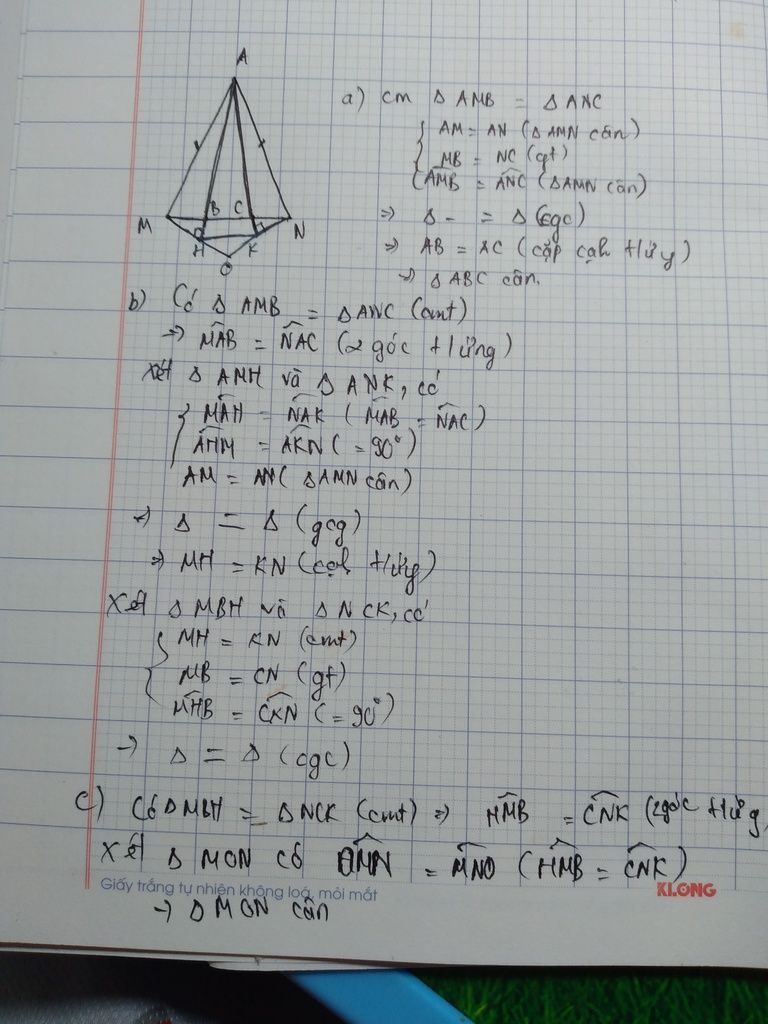 A
M
B
C
N
H
K
O
a) cm Δ AMB = Δ ANC
AM = AN (Δ AMN cân)
MB = NC (gt)
AMB = ANC (ΔAMN cân)
=> Δ - = Δ (cgc)
=> AB = AC (cặp cạh tứ/y)
=> Δ ABC cân.
b) Có Δ AMB = Δ ANC (cmt)
=> MAB = NAC (2 góc t/ứng)
Xét Δ AMH và Δ ANK, có
MAH = NAK (MAB = NAC)
AHM = AKN (= 90°)
AM = AN (ΔAMN cân)
=> Δ = Δ (gcg)
=> MH = KN (cạh t/ứg)
Xét Δ MBH và Δ NCK, có
MH = KN (cmt)
MB = CN (gt)
MHB = CKN (= 90°)
-> Δ = Δ (cgc)
c) Có Δ MBH = Δ NCK (cmt) => HMB = CNK (2góc t/ứg,
Xét Δ MON có OMN = MNO (HMB = CNK)
Giấy trắng tự nhiên không loá, mỏi mắt
KLONG
-> Δ MON cân